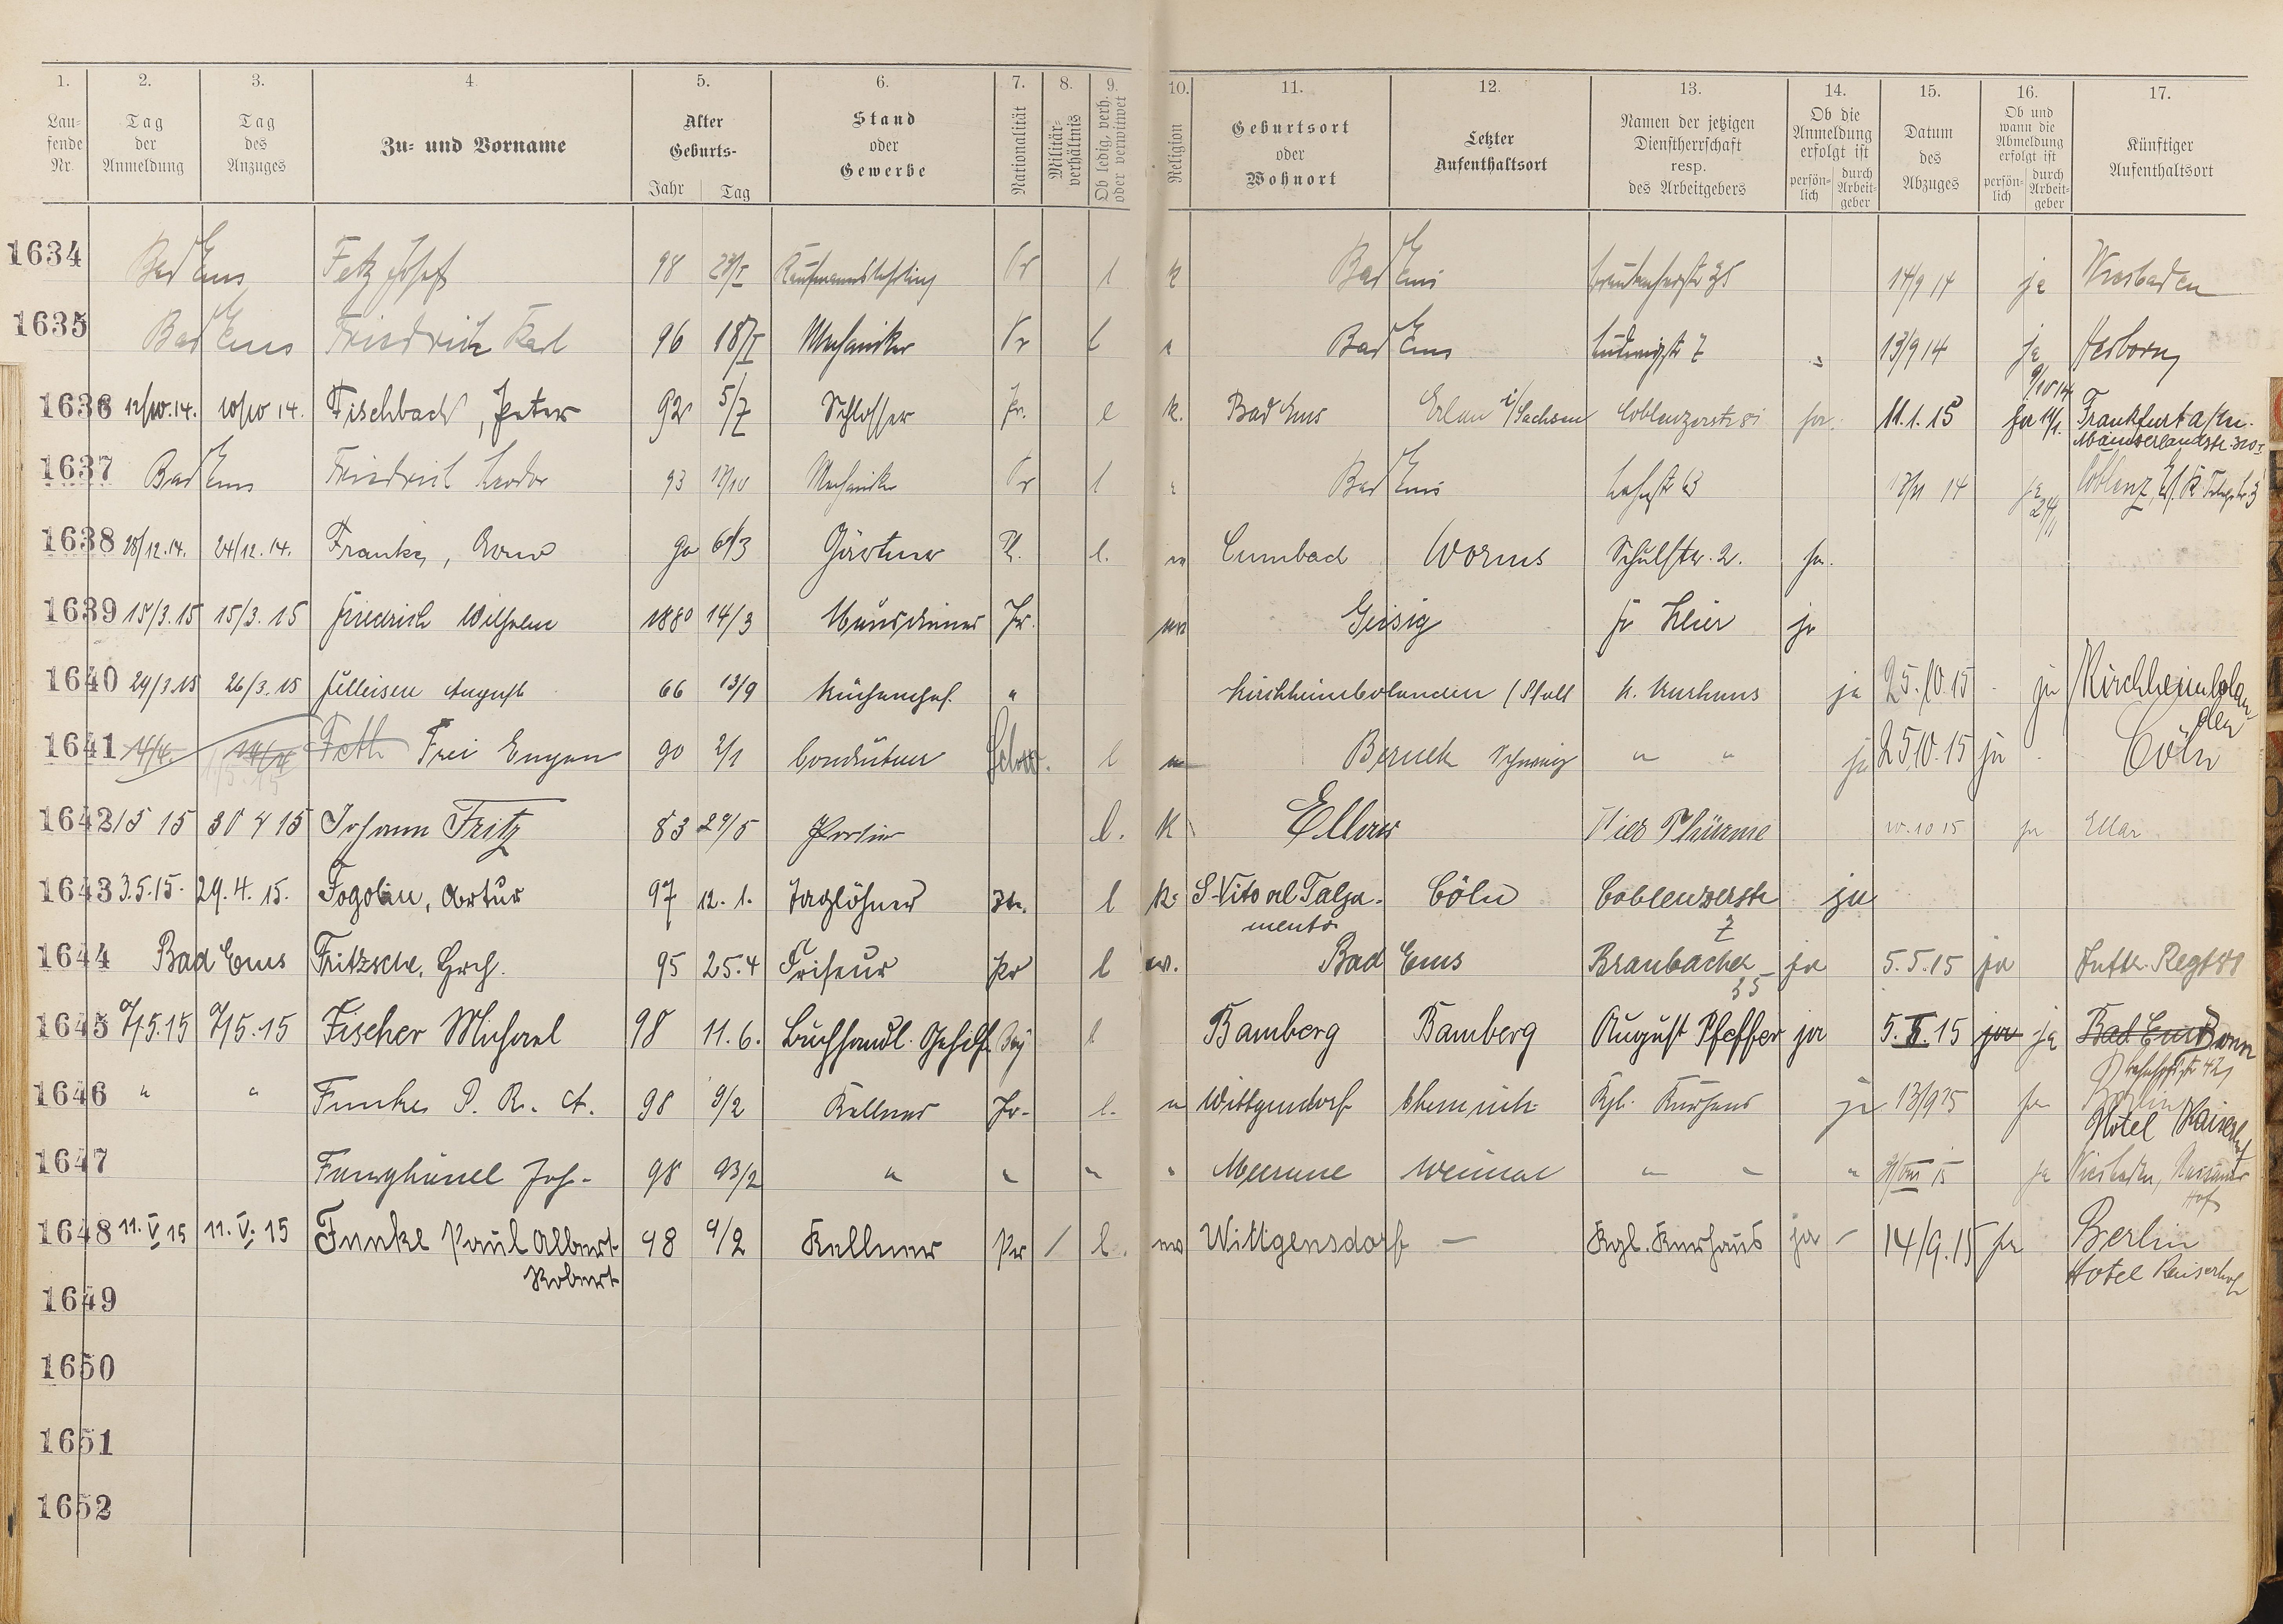 1. 2. 3. 4. 5. 6. 7. 8. 9. 10. 11. 12. 13. 14. 15. 16. 17.
Lau-
fende
Nr.
Tag
der
Anmeldung
Tag
des
Anzuges
Zu- und Vorname
Alter
Geburts-
Jahr Tag
Stand
oder
Gewerbe
Nationalität
Militär-
verhältnis
Ob ledig, verh.
oder verwitwet
Religion
Geburtsort
oder
Wohnort
Letzter
Aufenthaltsort
Namen der jetzigen
Dienstherrschaft
resp.
des Arbeitgebers
Ob die
Anmeldung
erfolgt ist
persön-
lich
durch
Arbeit-
geber
Datum
des
Abzuges
Ob und
wann die
Abmeldung
erfolgt ist
persön-
lich
durch
Arbeit-
geber
Künftiger
Aufenthaltsort
1634 Bad Ems Fetz Josef 98 Pr l k Bad Ems 14/9 14 ja Wiesbaden
1635 Bad Ems Friedrich Karl 96 18/I Mechaniker Pr l Bad Ems Ludwigstr 7 13/9 14 ja Herborn
9/10 14
1636 12/10.14. 10/10 14. Fischbach, Peter 92 5/7 Schlosser Pr. l k. Bad Ems Erlau i/Sachsen Coblenzerstr 81 ja. 11.1.15 ja 14/1. Frankfurt a/M.
Mainzerlandstr. 320 I
1637 Bad Ems Friedrich 93 12/10 Mechaniker Pr l Bad Ems Lahnstr 63 14 ja Coblenz
24/11
1638 28/12.14. 24/12.14. Franke, Gärtner l. Cumbach Worms Schulstr. 2. ja.
1639 15/3.15 15/3.15 Friedrich Wilhelm 1880 14/3 Hausdiener Pr. Geisig ja
1640 29/3.15 26/3.15 Filleisen August 66 13/9 Küchenchef " Kirchheimbolanden (Pfalz K. Kurhaus ja 25.10.15 ja Kirchheimbolan-
den
1641 14/4. 14/4 Feth Frei Eugen 90 2/1 Conditor Schw. l Berneck Schweiz " " ja 25.10.15 ja Cöln
1/5.15
1642 1 5 15 30 4 15 Johann Fritz 83 29/5 Portier l. K Ellar Vier Thürme 10.10 15 ja Ellar
1643 3.5.15. 29.4.15. Fogolin, Artur 97 12.1. Taglöhner It. l k. S. Vito al Talga- Cöln Coblenzerstr ja
mento 7
1644 Bad Ems Fritzsche, Hrch. 95 25.4 Friseur Pr l ev. Bad Ems Braubacher ja 5.5.15 ja Inftr. Regt 88
35
1645 7/5.15 7/5.15 Fischer Michael 98 11.6. Buchhandl. Gehilfe Bay l Bamberg Bamberg August Pfeffer ja 5.X.15 ja ja Bad Ems Bonn
Bahnhofstr 42
1646 " " Funke P. R. A. 98 9/2 Kellner Pr. l. Wittgendorf Chemnitz Kgl. Kurhaus ja 13/9 15 ja Berlin
Hotel Kaiserhof
1647 Funghänel Joh. 98 23/2 " " " " Meerane Weimar " " " ja Wiesbaden, Nassauer
Hof
1648 11.V 15 11.V. 15 Funke Paul Albert 98 9/2 Kellner Pr / l. ev Wittgensdorf — Kgl. Kurhaus ja – 14/9.15 ja Berlin
Robert Hotel Kaiserhof
1649
1650
1651
1652